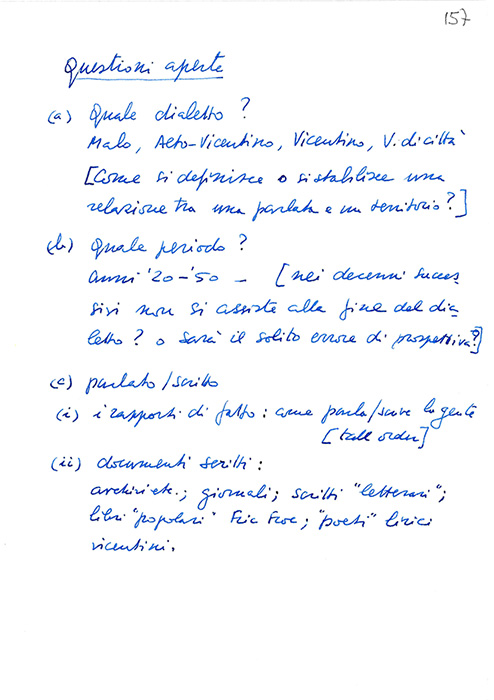 157
Questioni aperte
(a) Quale dialetto ?
Malo, Alto-Vicentino, Vicentino, V. di città
[Come si definisce o si stabilisce una
relazione tra una parlata e un territorio?]
(b) Quale periodo ?
anni '20-'50 – [nei decenni succes
sivi non si assiste alla fine del dia-
letto ? o sarà il solito errore di prospettiva?]
(c) parlato/scritto
(i) i rapporti di fatto : come parla/scrive la gente
[tall order]
(ii) documenti scritti :
archivi etc.; giornali; scritti "letterari";
libri "popolari" Fric Froc; "poeti" lirici
vicentini.